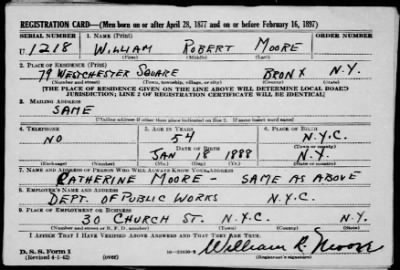 REGISTRATION CARD—(Men born on or after April 28, 1877 and on or before February 16, 1897)
SERIAL NUMBER 1. NAME (Print) ORDER NUMBER
U 1218 WILLIAM ROBERT MOORE
(First) (Middle) (Last)
2. PLACE OF RESIDENCE (Print)
79 WESTCHESTER SQUARE BRONX N.Y.
(Number and street) (Town, township, village, or city) (County) (State)
[THE PLACE OF RESIDENCE GIVEN ON THE LINE ABOVE WILL DETERMINE LOCAL BOARD
JURISDICTION; LINE 2 OF REGISTRATION CERTIFICATE WILL BE IDENTICAL]
3. MAILING ADDRESS
SAME
[Mailing address if other than place indicated on line 2. If same insert word same]
4. TELEPHONE 5. AGE IN YEARS 6. PLACE OF BIRTH
NO 54 N.Y.C.
DATE OF BIRTH (Town or county)
JAN 18 1888 N.Y.
(Exchange) (Number) (Mo.) (Day) (Yr.) (State or country)
7. NAME AND ADDRESS OF PERSON WHO WILL ALWAYS KNOW YOUR ADDRESS
KATHERINE MOORE - SAME AS ABOVE
8. EMPLOYER'S NAME AND ADDRESS
DEPT. OF PUBLIC WORKS N.Y.C.
9. PLACE OF EMPLOYMENT OR BUSINESS
30 CHURCH ST. N.Y.C. N.Y.
(Number and street or R. F. D. number) (Town) (County) (State)
I AFFIRM THAT I HAVE VERIFIED ABOVE ANSWERS AND THAT THEY ARE TRUE.
D. S. S. Form 1
(Revised 4-1-42) (over) William R. Moore